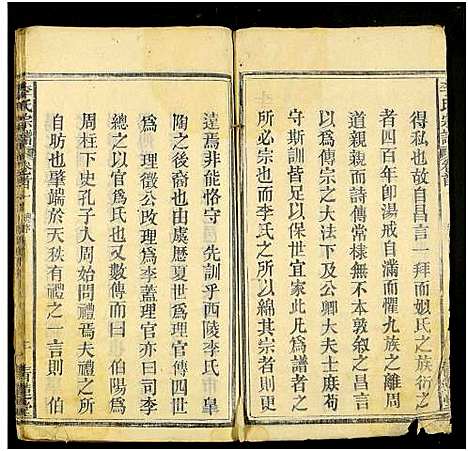 得私也故自昌言一拜而姒氏之族衍之
者四百年卽湯戒自滿而懼九族之離周
道親親而詩傳常棣無不本敦敘之昌言
以爲傳宗之大法下及公卿大夫士庶苟
守斯訓皆以保世宜家此凡爲譜者之
所必宗也而李氏之所以綿其宗者則更
遠焉非能恪守 先訓乎西陵李氏 皐
陶之後裔也由虞歷夏世爲理官傳四世
爲 理徵公政理爲李蓋理官亦曰司李
總之以官爲氏也又數傳而曰 伯陽爲
周柱下史孔子入周始問禮焉夫禮之所
自昉也肇端於天秩有禮之一言則 伯
李氏宗譜 卷首
李氏宗譜 卷首